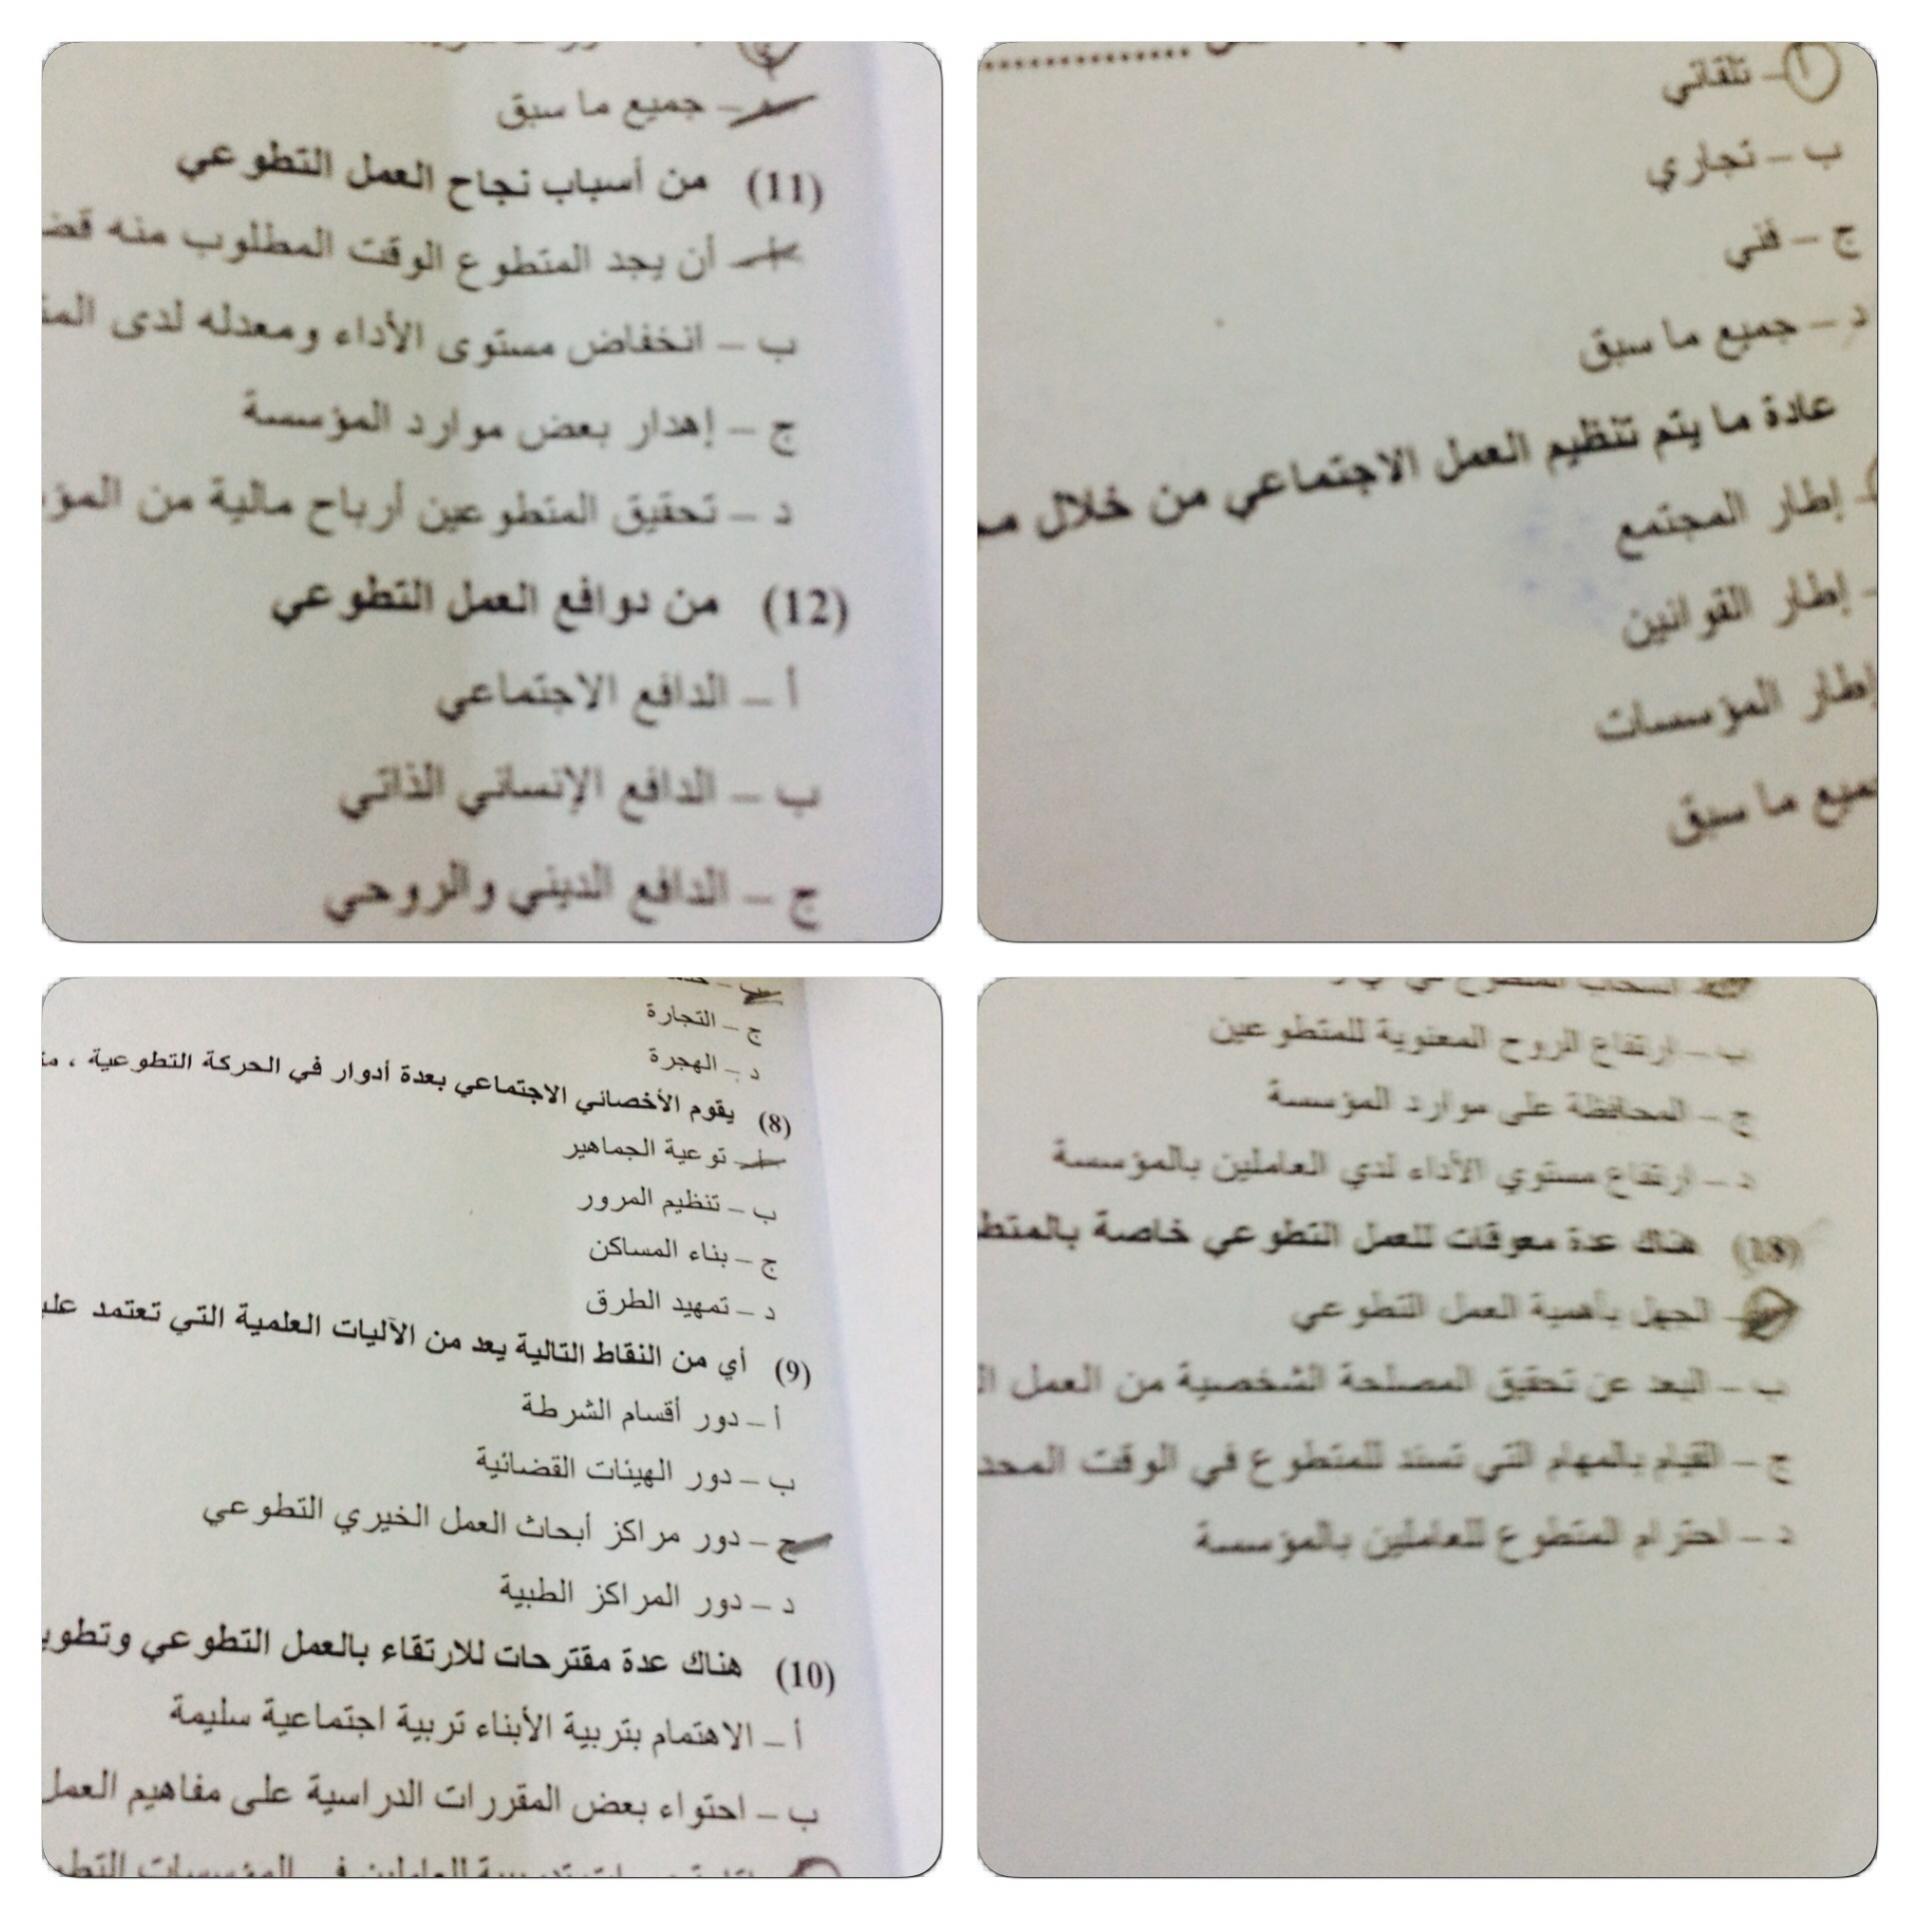 د – جميع ما سبق
(11) من أسباب نجاح العمل التطوعي
أ – أن يجد المتطوع الوقت المطلوب منه
ب – انخفاض مستوى الأداء ومعدله لدى
ج – إهدار بعض موارد المؤسسة
د – تحقيق المتطوعين أرباح مالية من
(12) من دوافع العمل التطوعي
أ – الدافع الاجتماعي
ب – الدافع الإنساني الذاتي
ج – الدافع الديني والروحي
أ – تلقائي
ب – تجاري
ج – فني
د – جميع ما سبق
عادة ما يتم تنظيم العمل الاجتماعي من خلال
– إطار المجتمع
– إطار القوانين
إطار المؤسسات
ما سبق
ج – التجارة
د – الهجرة
(8) يقوم الأخصائي الاجتماعي بعدة أدوار في الحركة التطوعية ،
أ – توعية الجماهير
ب – تنظيم المرور
ج – بناء المساكن
د – تمهيد الطرق
(9) أي من النقاط التالية يعد من الآليات العلمية التي تعتمد
أ – دور أقسام الشرطة
ب – دور الهيئات القضائية
ج – دور مراكز أبحاث العمل الخيري التطوعي
د – دور المراكز الطبية
(10) هناك عدة مقترحات للارتقاء بالعمل التطوعي
أ – الاهتمام بتربية الأبناء تربية اجتماعية سليمة
ب – احتواء بعض المقررات الدراسية على مفاهيم العمل
ب – ارتفاع الروح المعنوية للمتطوعين
ج – المحافظة على موارد المؤسسة
د – ارتفاع مستوي الأداء لدي العاملين بالمؤسسة
هناك عدة معوقات للعمل التطوعي خاصة
– الجهل بأهمية العمل التطوعي
ب – البعد عن تحقيق المصلحة الشخصية من العمل
ج – القيام بالمهام التي تسند للمتطوع في الوقت
د – احترام المتطوع للعاملين بالمؤسسة